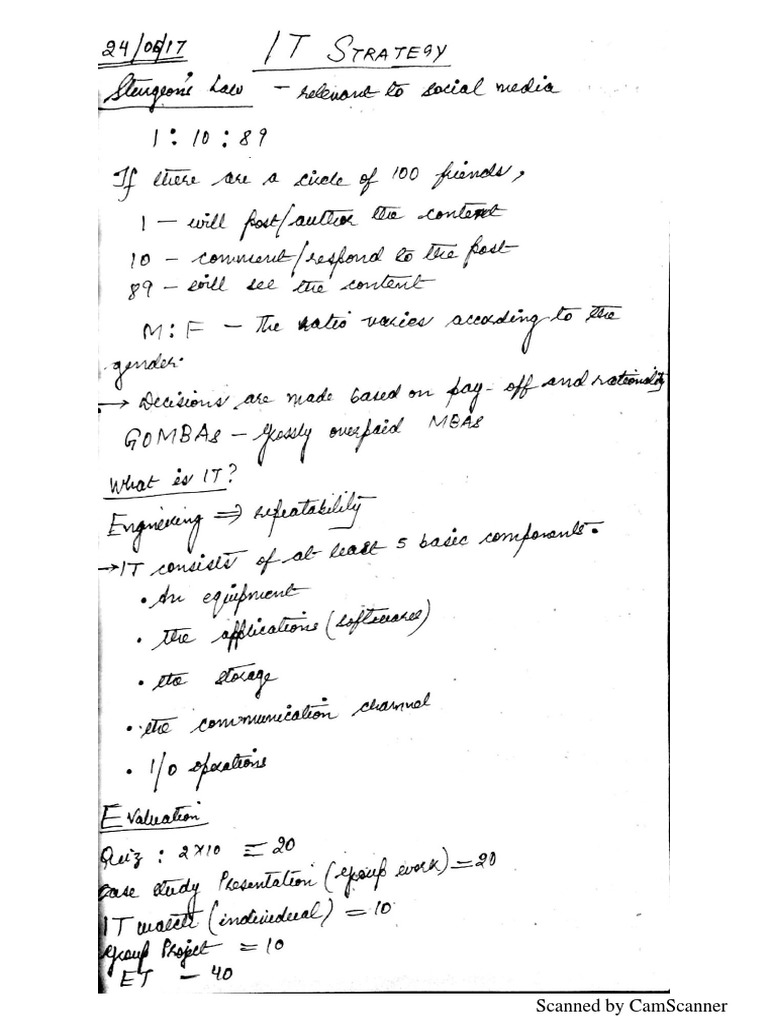 24/06/17 IT STRATEGY
Sturgeon's Law - relevant to social media
1 : 10 : 89
If there are a circle of 100 friends,
1 - will post/author the content
10 - comment/respond to the post
89 - will see the content
M : F - The ratio varies according to the
gender.
→ Decisions are made based on pay-off and rationality
GOMBAs - Grossly overpaid MBAs
What is IT?
Engineering ⇒ repeatability
→ IT consists of at least 5 basic components.
• An equipment
• the applications (softwares)
• the storage
• the communication channel
• I/O operations
Evaluation
Quiz : 2 x 10 = 20
Case study Presentation (group work) = 20
IT watch (individual) = 10
Group Project = 10
ET - 40
Scanned by CamScanner